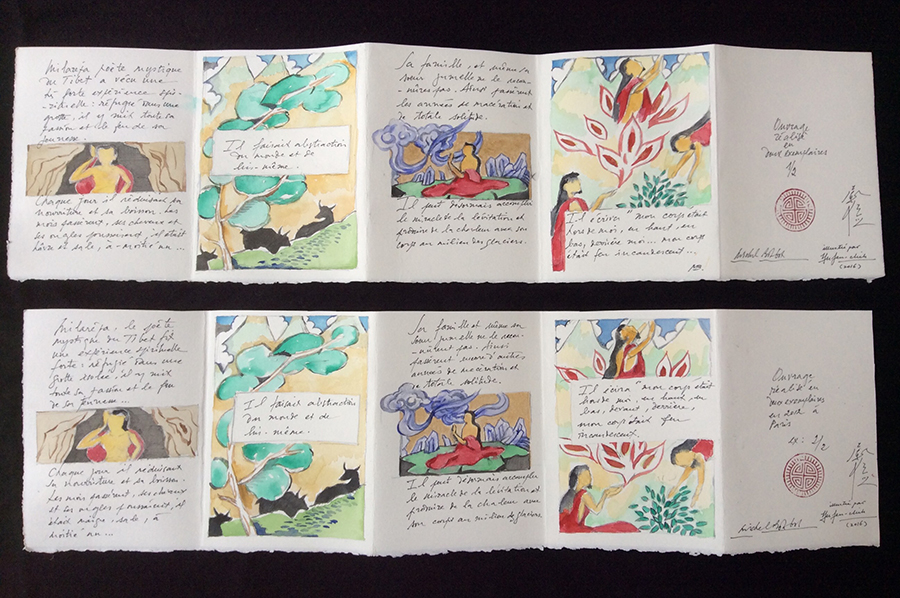 Milarépa poète mystique
du Tibet a vécu une
forte expérience spi-
-rituelle : réfugié dans une
grotte, il y mit toute sa
passion et le feu de son
jeunesse.
Chaque jour il réduisait sa
nourriture et sa boisson. Les
mois passèrent, ses cheveux et
ses ongles poussaient, il était
et sale, à-moitié nu ...
Il faisait abstraction
du monde et de
lui-même.
Sa famille, et même sa
sœur jumelle ne le recon-
nûtres pas. Ainsi passèrent
les années de macération et
de totale solitude.
Il put désormais accomplir
le miracle de la lévitation et
produire de la chaleur avec son
corps au milieu des glaciers.
Il écrivit "mon corps était
hors de moi, en haut, en
bas, derrière moi... mon corps
était feu incandescent...
Ouvrage
réalisé
en
deux exemplaires
1/2
(2016)
Milarépa, le poète
mystique du Tibet fit
une expérience spirituelle
forte : réfugié dans une
grotte il y mit
toute sa passion et le feu
de son jeunesse...
Chaque jour il réduisait
sa nourriture et sa boisson.
Les mois passèrent, ses cheveux
et ses ongles poussaient, il
était maigre, sale, à
moitié nu ...
Il faisait abstraction
du monde et de
lui-même.
Sa famille et même sa
sœur jumelle ne le recon-
nurent pas. Ainsi
passèrent
années de macération et
de totale solitude.
Il put désormais accomplir
le miracle de la lévitation et
produire de la chaleur avec
son corps au milieu de glaciers
Il écrivit "mon corps était
hors de moi, en haut, en
bas, devant, derrière,
mon corps était feu
incandescent.
Ouvrage
réalisé en
deux exemplaires
en 2016 à
Paris
ex : 2/2
(2016)